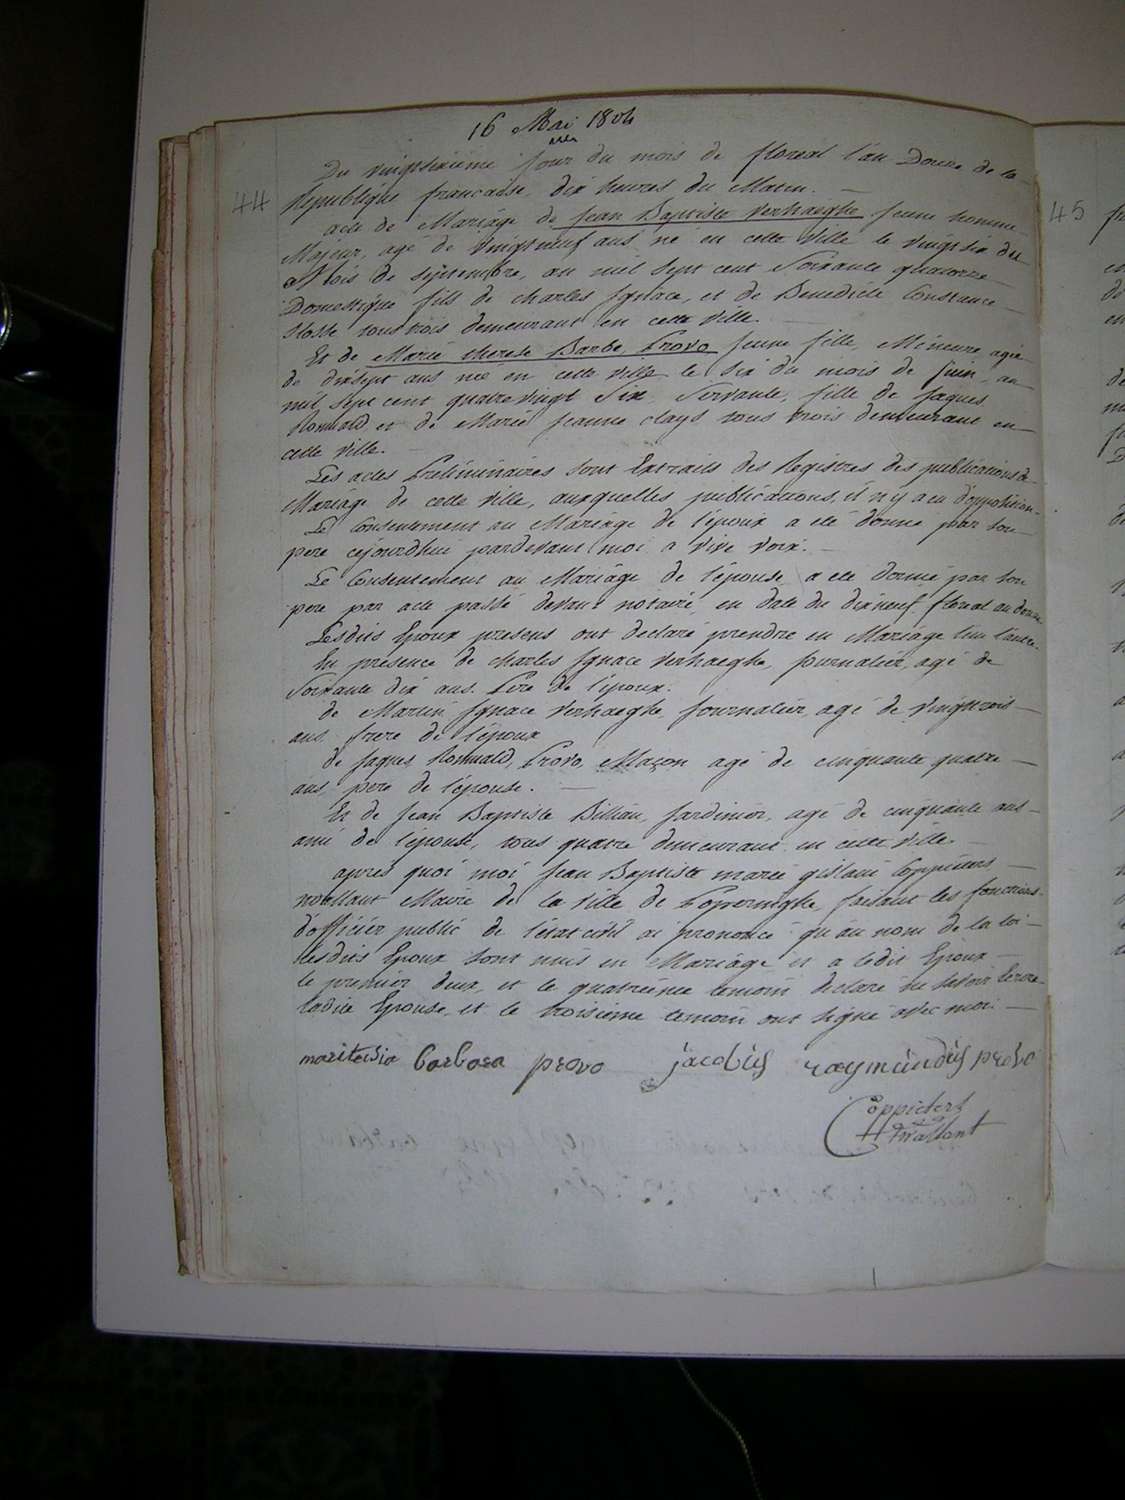 16 Mai 1804
44
Du vingtsixième jour du mois de floreal l'an Douze de la
République francaise, dix heures du Matin.
acte de Mariage de Jean Baptiste Verhaeghe jeune homme
Majeur, agé de vingtneuf ans né en cette ville le vingt six du
Mois de septembre, an mil sept cent Soixante quatorze
Domestique fils de charles Ignace, et de Benedicte Constance
tous trois demeurant en cette ville.
Et de Marie therese Barbe Provo jeune fille, Mineure agée
de dixsept ans née en cette ville le Six du mois de Juin, an
mil sept cent quatrevingt Six, Servante, fille de Jaques
Romuald et de Marie Jeanne Clays tous trois demeurant en
cette ville.
Les actes Preliminaires sont Extraits des Registres des publications de
Mariage de cette ville, auxquelles publications, il n'y a eu d'opposition
Le Consentement au Mariage de l'époux a eté donné par son
pere cejourdhui pardevant moi a vive voix.
Le Consentement au Mariage de l'épouse a eté donné par son
pere par acte passé devant notaire en date du dixneuf floreal an douze
Lesdits Epoux presens ont declaré prendre en Mariage l'un l'autre.
En presence de charles Ignace Verhaeghe, journalier, agé de
Soixante dix ans. Pere de l'époux.
de Martin Ignace Verhaeghe journalier agé de vingttrois
ans frere de l'époux
de Jaques Romuald, Provo, Maçon agé de cinquante quatre
ans pere de l'épouse.
Et de Jean Baptiste Billiau, Jardinier, agé de cinquante ans
ami de l'épouse, tous quatre demeurant en cette ville.
après quoi moi Jean Baptiste marie gislain Coppieters
Maire de la ville de Poperinghe, faisant les fonctions
d'officier public de l'état civil ai prononcé qu'au nom de la loi
lesdits Epoux sont unis en Mariage et a ledit Epoux
le premier deux et le quatrieme temoin declaré ne savoir Ecrire
ladite Epouse et le troisième temoin ont signé avec moi.
maritersia barbara provo jacobus raymundus provo
Coppieters
45